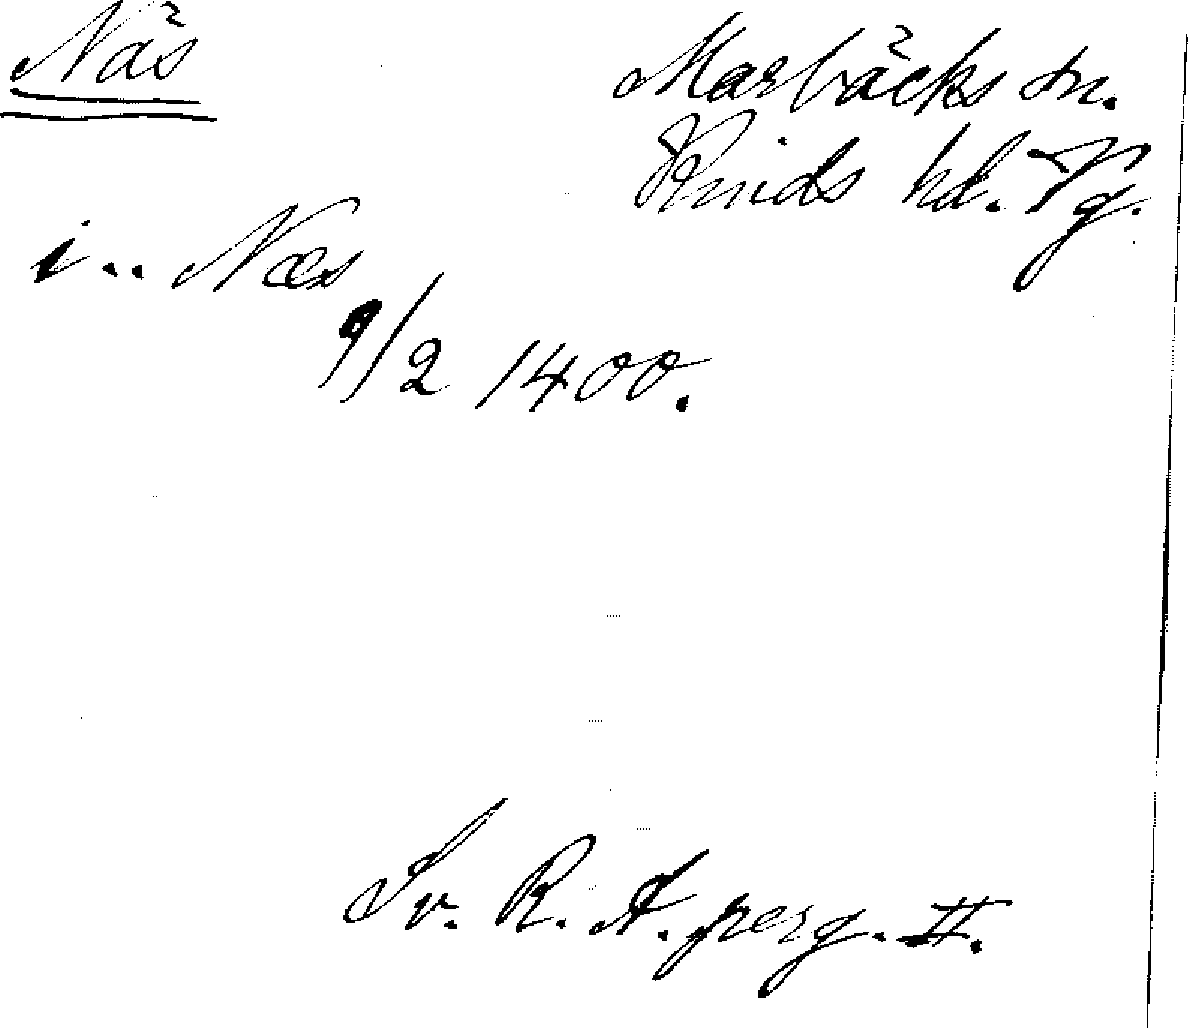 Näs
Marbäcks sn.
Kinds hd. Vg.
i.. Næs
9/2 1400.
Sv. R. A. perg. II.